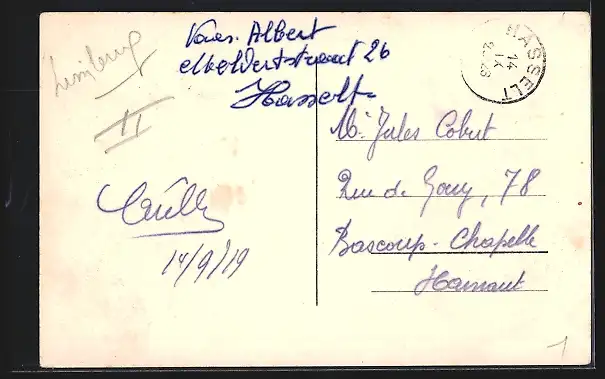 Limburg
II
Vaes. Albert
Meldertstraat 26
Hasselt
HASSELT
14
IX
M. Jules Cobut
Rue de Gouy, 78
Bascoup-Chapelle
Hainaut
14/9/19
1